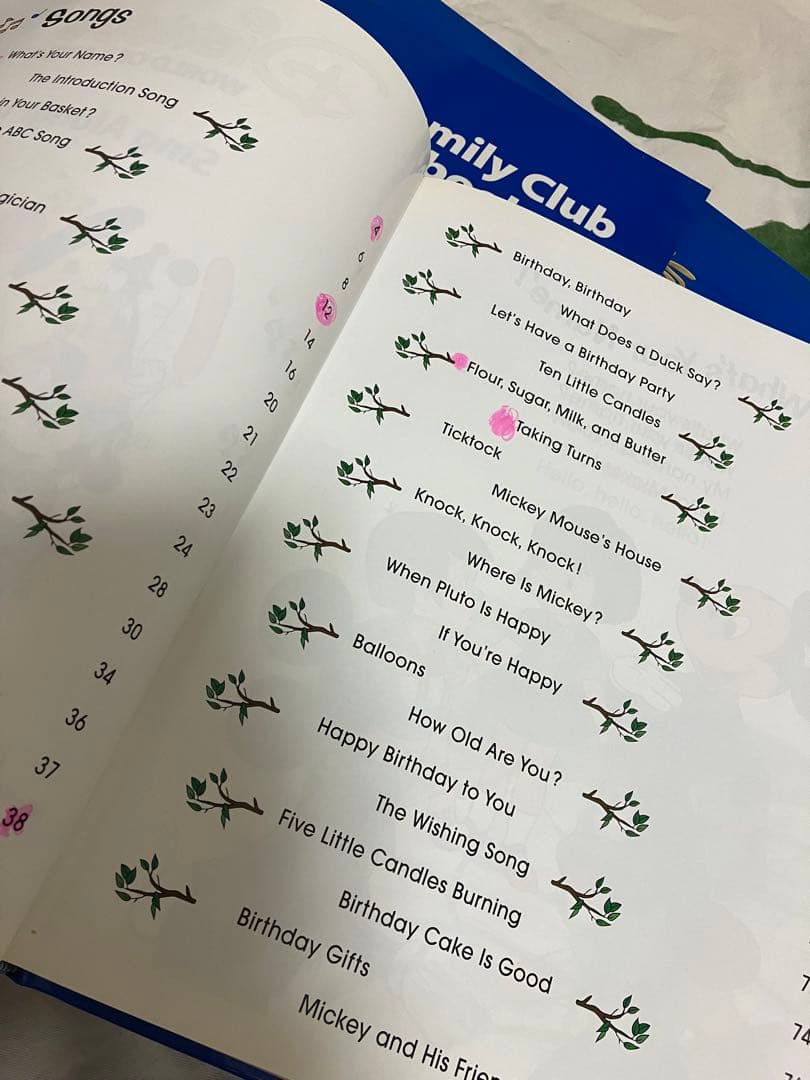 Songs
What's Your Name?
The Introduction Song
in Your Basket?
ABC Song
gician
4
6
8
12
14
16
20
21
22
23
24
28
30
34
36
37
38
mily Club
Birthday, Birthday
What Does a Duck Say?
Let's Have a Birthday Party
Ten Little Candles
Flour, Sugar, Milk, and Butter
Taking Turns
Ticktock
Mickey Mouse's House
Knock, Knock, Knock!
Where Is Mickey?
When Pluto Is Happy
If You're Happy
Balloons
How Old Are You?
Happy Birthday to You
The Wishing Song
Five Little Candles Burning
Birthday Cake Is Good
Birthday Gifts
Mickey and His Frien
7
74